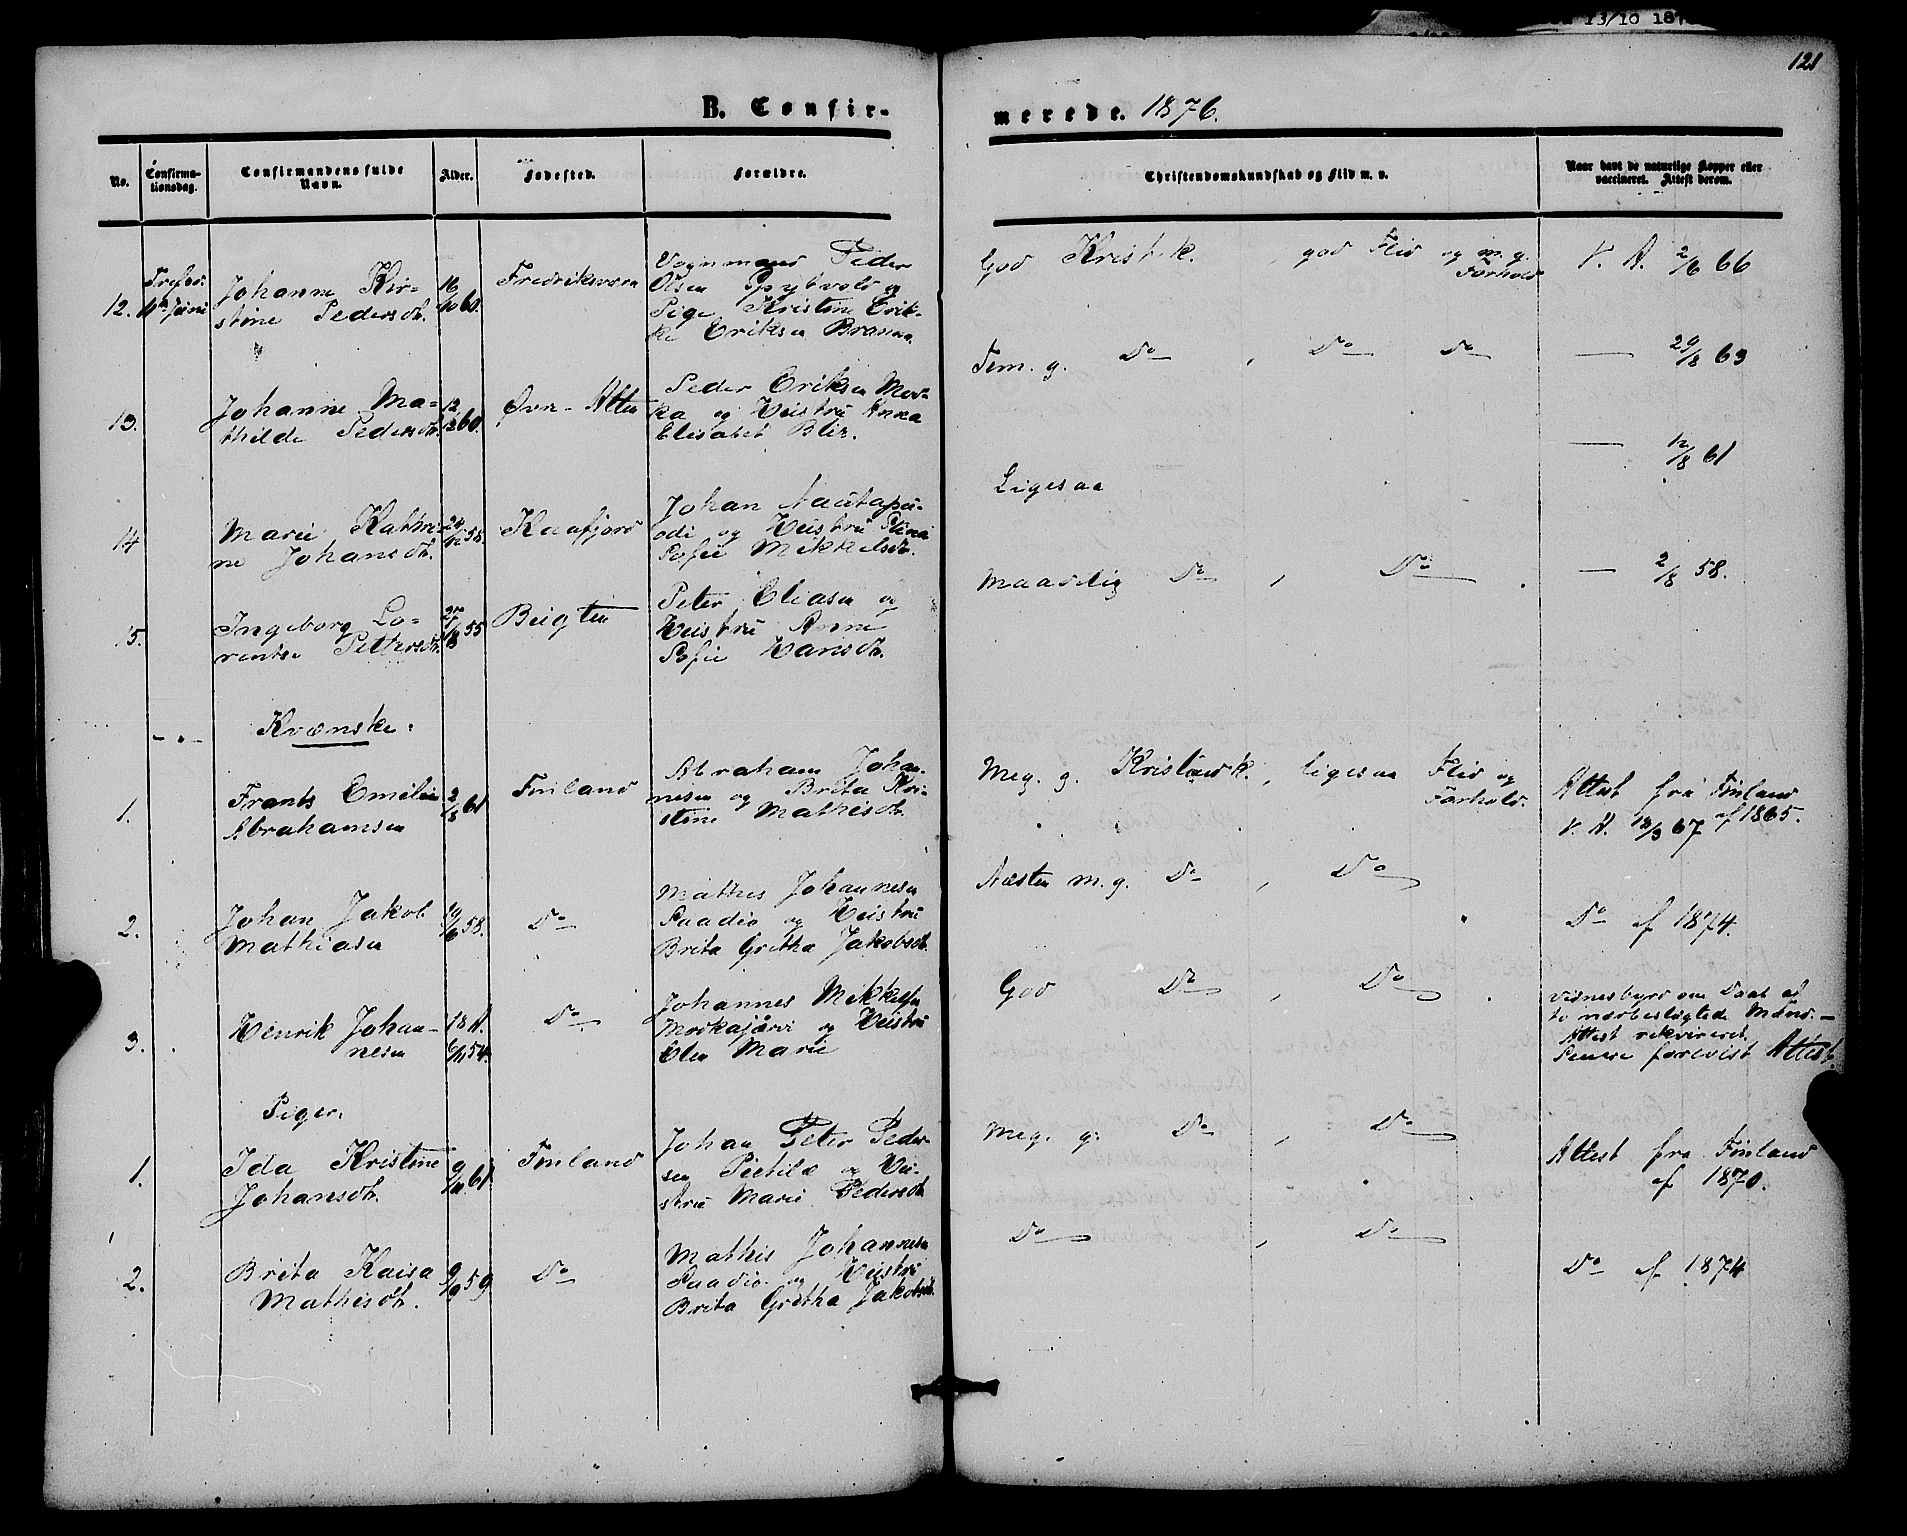 13/10 187
121
B. Confir-
merede. 1876.
No.
Confirma-
tionsdag.
Confirmandens fulde
Navn.
Alder.
Fødested.
Forældre.
Christendomskundskab og Flid m. v.
Naar havt de naturlige Kopper eller
vaccineret. Attest derom.
12.
11te Juni
Johanne Kir-
stine Pedersdt.
16/10 60.
Fredriksværn
Peder
Olsen og
Pige Kristine Erik-
ke Eriksen
God Kristk. , god Flid og m. g.
Forhold
V. A. 2/6 66
13.
Johanne Ma-
thilde Pedersdt.
12/12 60.
Øvre-Alten
Peder Eriksen
og Heistru Anna
Elisabet
Tem. g. Do , Do Do
— 29/8 63
14
Marie Kathri-
ne Johansdt.
24/12 58.
Kaafjord
Johan
og Heistru Stina
Sofie Mikkelsdt.
Ligesaa
— 12/8 61
15.
Ingeborg Lo-
rentse Pettersdt.
27/8 55
Peter Eliasen og
Heistru Anne
Sofie Hansdt.
Maadelig Do , Do .
— 2/8 58.
— " — Kvænske.
1.
Frants Emilie
Abrahamsen
2/3 61
Finland
Abraham Johan-
nesen og Brita Kri-
stine Mathisdt.
Meg. g. Kristendk., ligesaa Flid og
Forhold.
Attest fra Finland
af 1865.
V. A. 18/3 67
2.
Johan Jakob
Mathiasen
19/6 58.
Do
Mathis Johannesen
Paadio og Heistru
Brita Gretha Jakobsdt.
Næsten m. g. Do , Do
Do af 1874.
3.
Henrik Johan-
nesen
18 A.
6/11 54.
Do
Johannes Mikkelsen
og Heistru
Elen Marie
God Do , Do .
Vidnesbyrd om Daab af
to nærbeslægtede Mænd. —
Attest rekvireret.
Senere forevist Attest.
Piger.
1.
Ida Kristine
Johansdt.
9/11 61.
Finland
Johan Peter Peder-
sen Pietilæ og Hei-
stru Marie Pedersdt.
Meg. g. Do , Do
Attest fra Finland
af 1870.
2.
Brita Kaisa
Mathisdt.
9/9 59
Do
Mathis Johannesen
Paadio og Heistru
Brita Gretha Jakobsdt.
Do , Do
Do af 1874